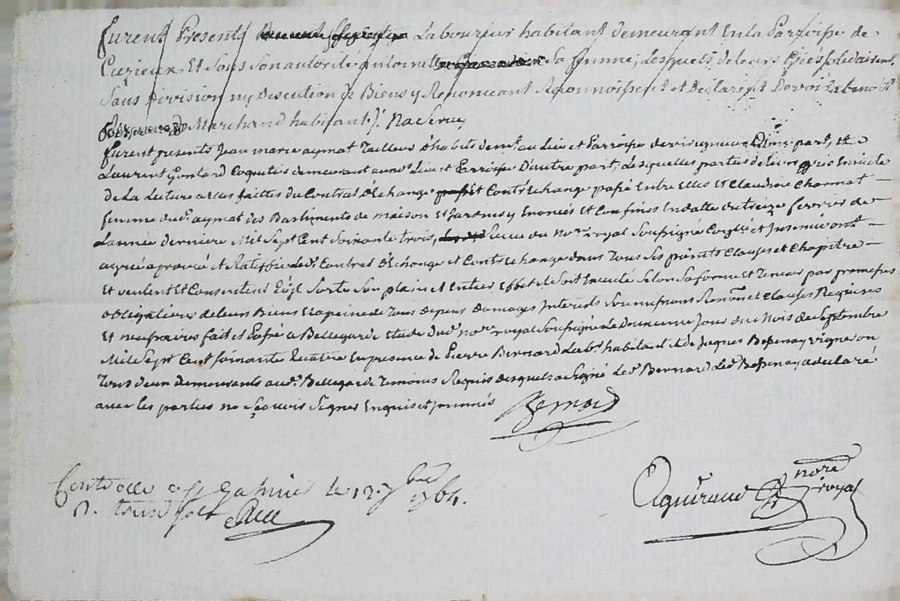 furent Presents Laboureur habitant demeurant En la Parroisse de
Cuzieux Et sous son autorite antoinette sa femme, lesquels de leurs gré solidairement
sans Division ny Discution de Biens y Renonceant Reconnoissent et Declarent Devoir
Marchand habitant
furent presents Jean marie aymat Tailleur d'habits demt. au Lieu et Parroisse de d'une part, et
Laurent Goulard Coquetier demeurant aud. Lieu et Parroisse D'autre part, Lesquelles parties de leurs gré Ensuite
de La Lecture a elles faittes du Contrat d'Echange et Contr'echange passé Entre elles et Claudine Charmat
femme dud. aymat des Bastiments de maison et Jardins y Enoncés et Confines En datte du treize fevrier de
L'année derniere Mil Sept Cent Soixante trois, Receu du nore. royal Soussigné Coglé et Insinué ont
agréé aprouvé et Ratiffié led. Contrat d'Echange et Contr'echange dans Tous Ses points Clauses et Chapitre
Et veulent et Consentent qu'il Sorte Son plain et Entier Effet et Soit Executé Selon Sa forme et Teneur par promesses
obligations de leurs Biens et a peine de Tous depens Domages Interets Soumissions Renon. et Clauses Requises
Et necessaires fait et Passé a Bellegarde Etude dud. nore. royal Soussigné Le Douzieme Jour du Mois de septembre
Mil Sept Cent Soixante Quatre En presence de Pierre Bernard Labr. habitant et de Jaques Bessenay vigneron
Tous deux Demeurants aud. Bellegarde Temoins Requis desquels a Signé led. Bernard led. Bessenay a declaré
avec les parties ne Sçavoir Signer Enquis et Sommés Bernard
Controllé a St Galmier le 12 7bre 1764.
R. treize sols
nore
royal